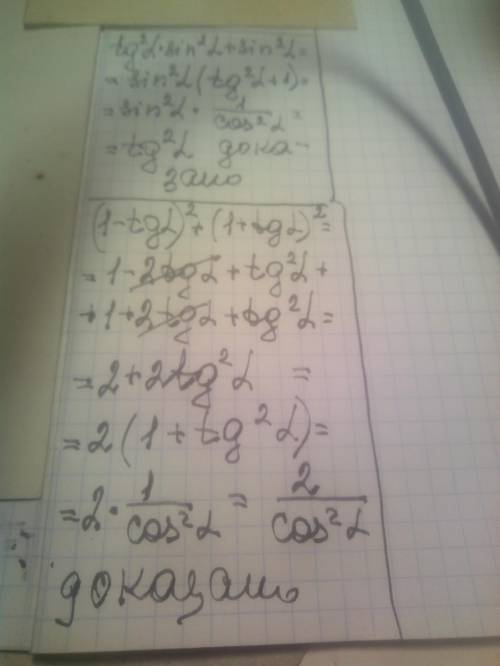 tg²α·sin²α+sin²α=
=sin²α(tg²α+1)=
=sin²α·1/cos²α=
=tg²α дока-
зано
(1-tgα)²+(1+tgα)²=
=1-2tgα+tg²α+
+1+2tgα+tg²α=
=2+2tg²α =
=2(1+tg²α)=
=2·1/cos²α=2/cos²α
доказано